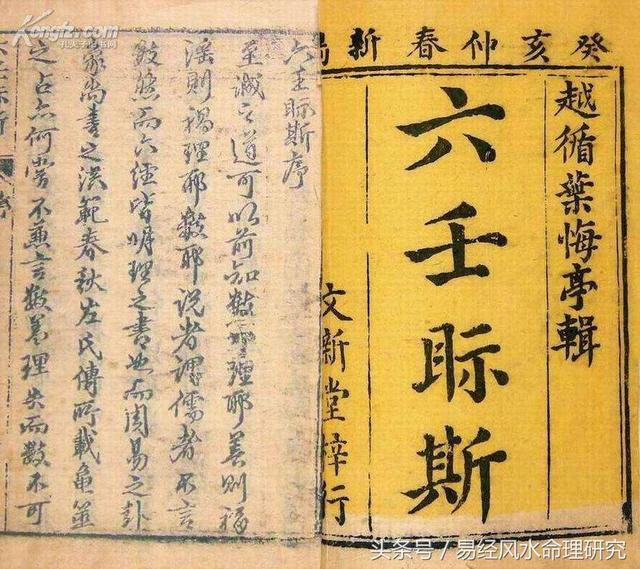 癸亥仲春新
越循葉悔亭輯
六壬眎斯
文新堂梓行
六壬眎斯序
至誠之道可以前知數耶理耶善則福
淫則禍理耶數耶説者謂儒者不言
數然而六經皆明理之書也而周易之卦
象尚書之洪範春秋左氏傳所載龜筮
之占亦何嘗不兼言數蓋理失而數不可
六壬眎斯
序
Kongfz.com
孔夫子旧书网
头条号/易经风水命理研究